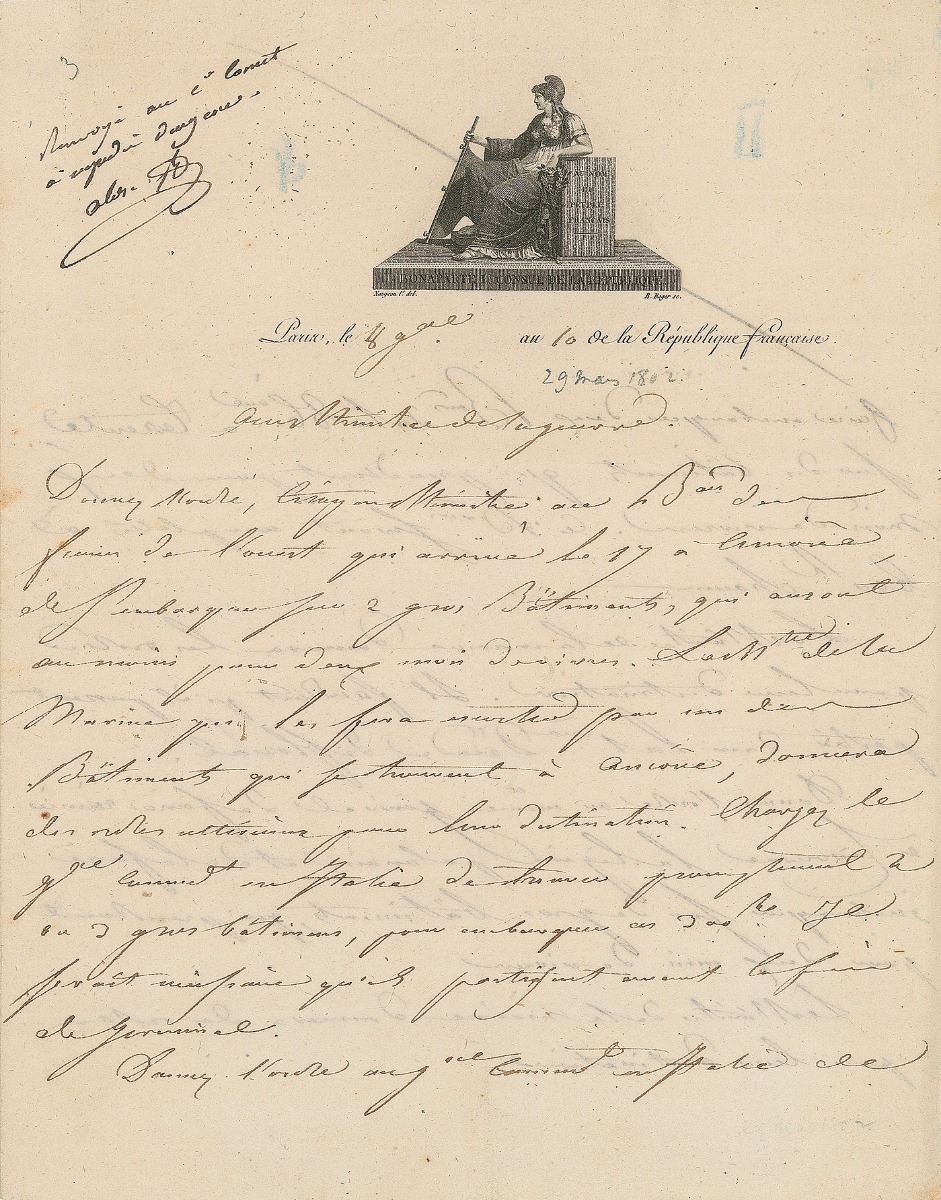 3
Renvoyé au Cen Comt
à expédier d'urgence.
alex. B
AU NOM
DU
PEUPLE
FRANÇAIS
BONAPARTE Ier CONSUL DE LA RÉPUBLIQUE.
Naigeon C. del. B. Roger sc.
Paris, le 8 gal an 10 de la République française.
29 mars 1802.
au Ministre de la guerre.
Donnez l'ordre, Citoyen Ministre au Baon des
francs de l'ouest qui arrive le 17 à Ancône,
de s'embarquer sur 2 gros Bâtiments, qui auront
au moins pour deux mois de vivres. Le Mtre de la
Marine qui les fera escorter par un des
Bâtiments qui se trouvent à Ancône, donnera
des ordres ultérieurs pour leur destination. Chargez le
gal Commdt en Italie de trouver promptement 2
ou 3 gros bâtimens, pour embarquer ces 300 he Il
serait nécessaire qu'ils partissent avant la fin
de Germinal.
Donnez l'ordre au gal Commdt en Italie de